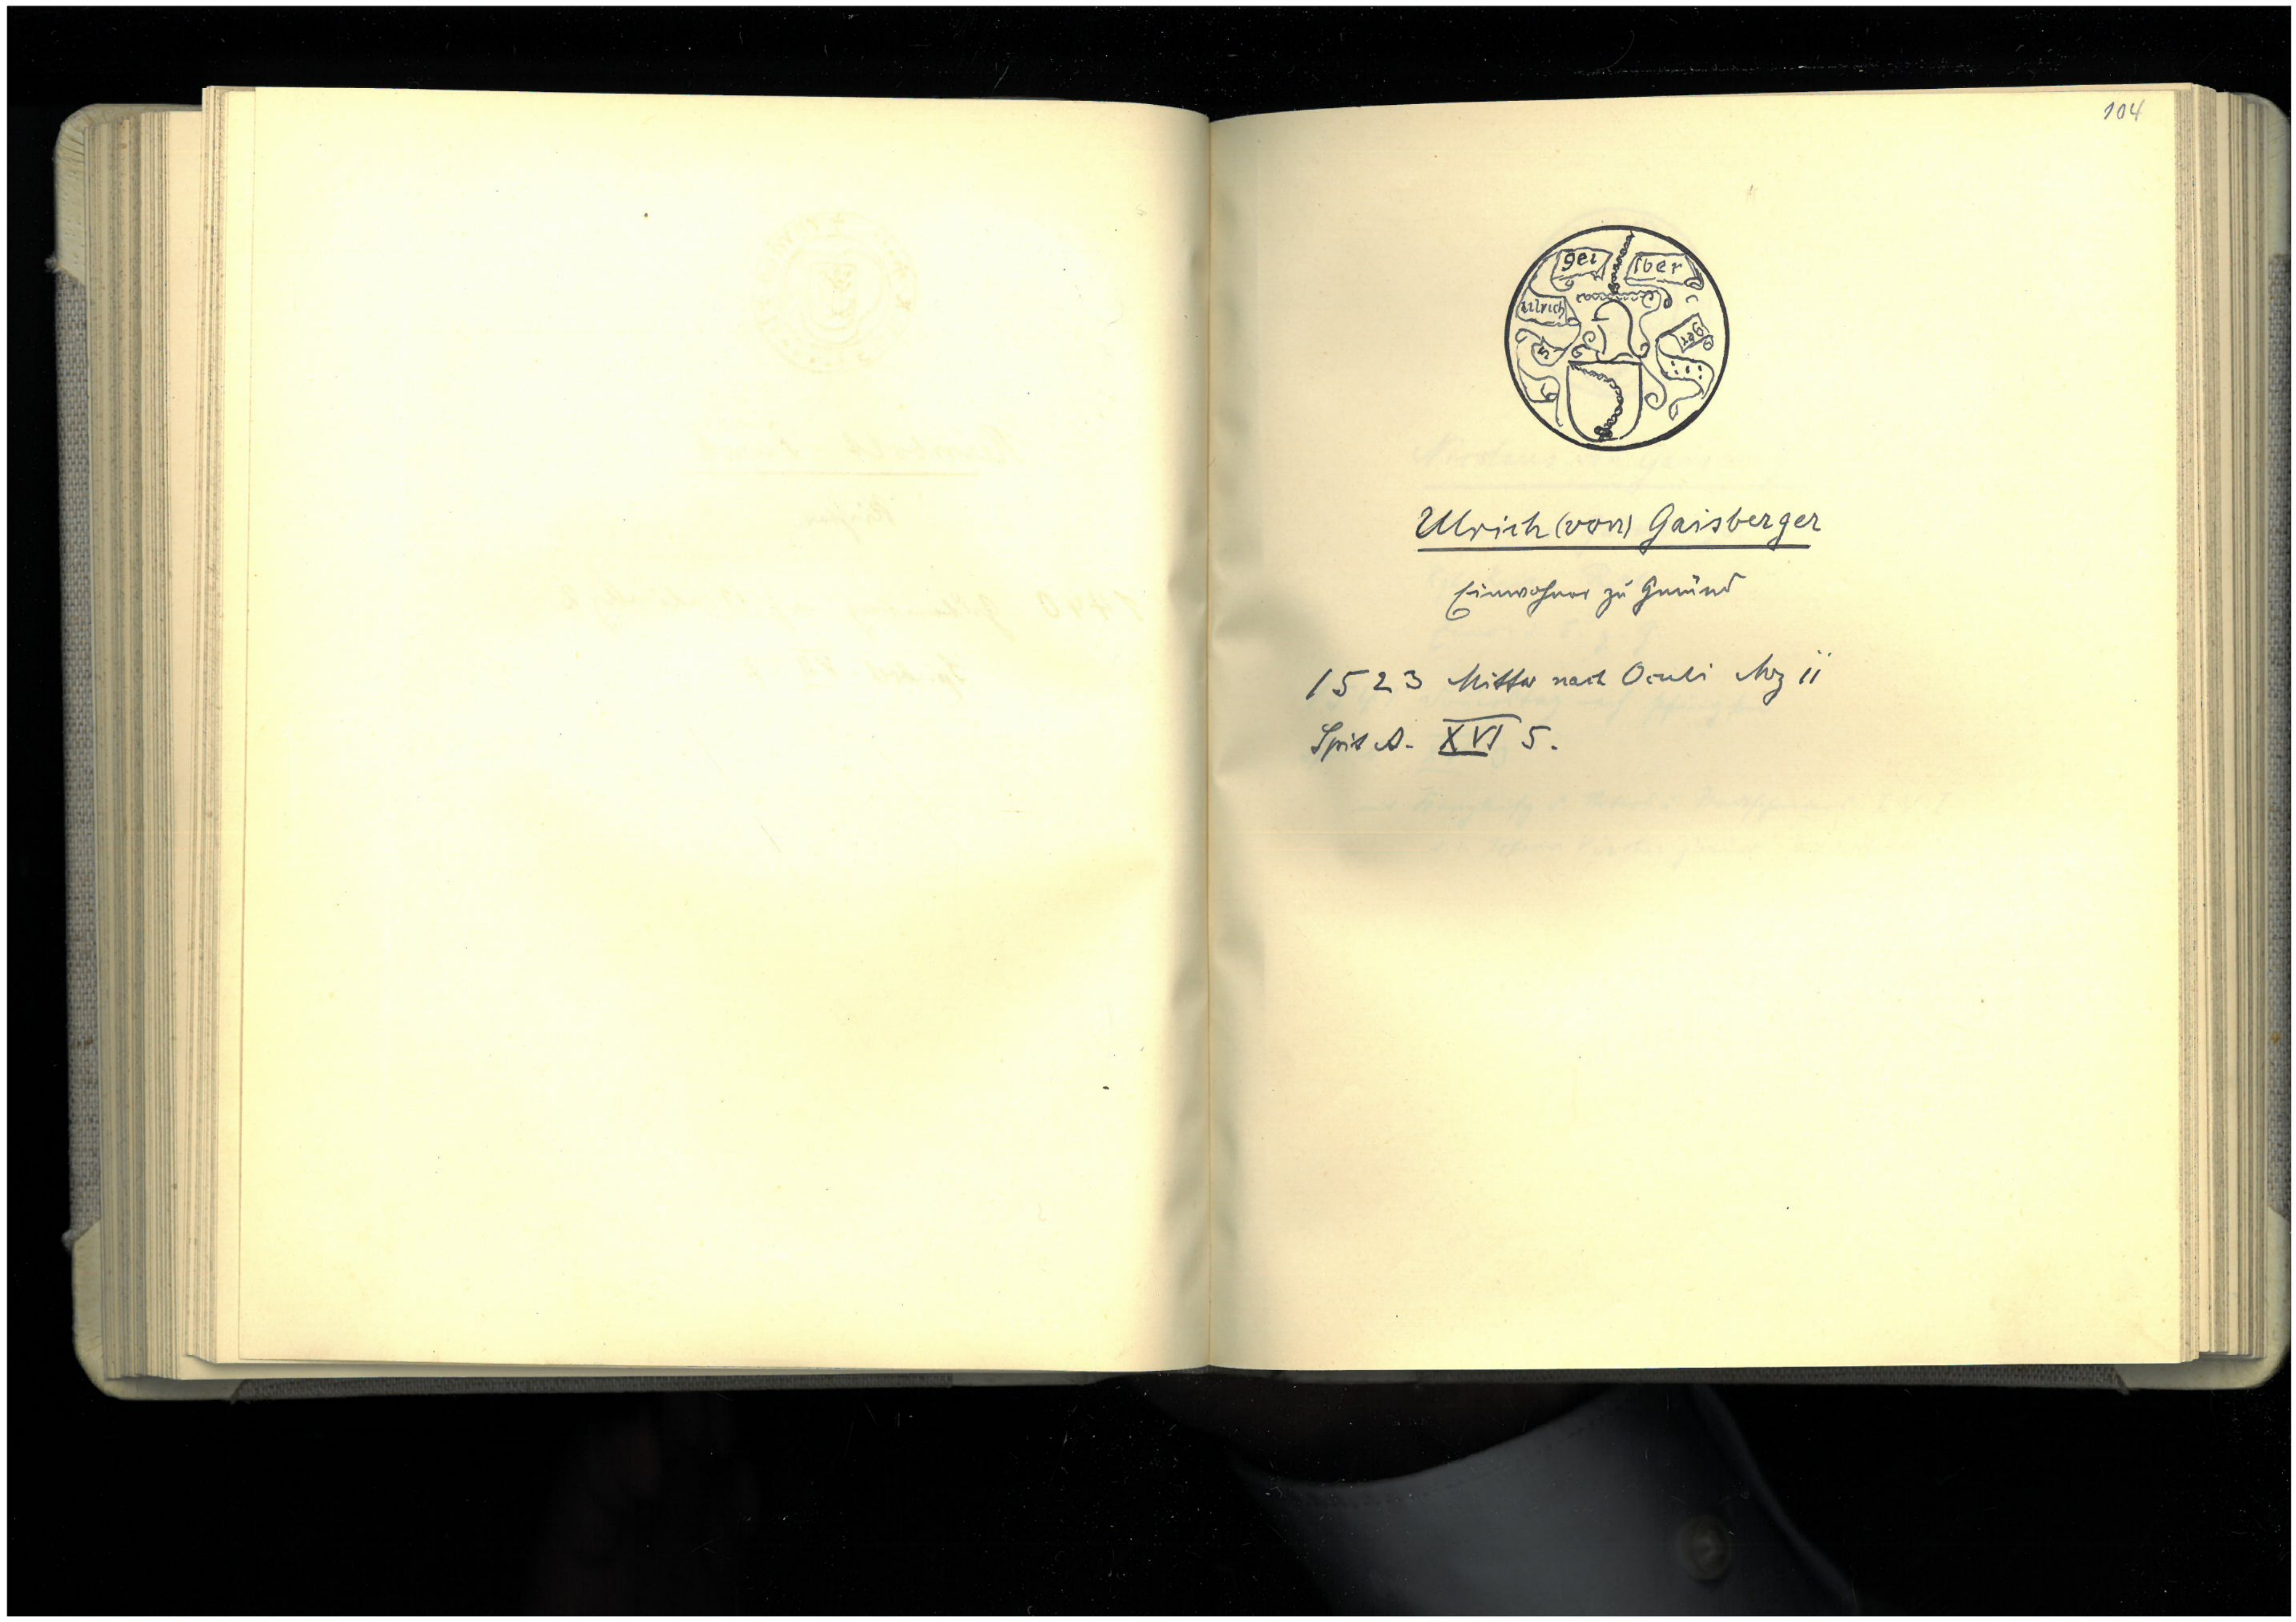 104
gei
ſber
ulrich
ger
Ulrich (von) Gaisberger
Einwohner zu Gmünd
1523 Mittw nach Oculi Mrz 11
Spit A. XVI 5.